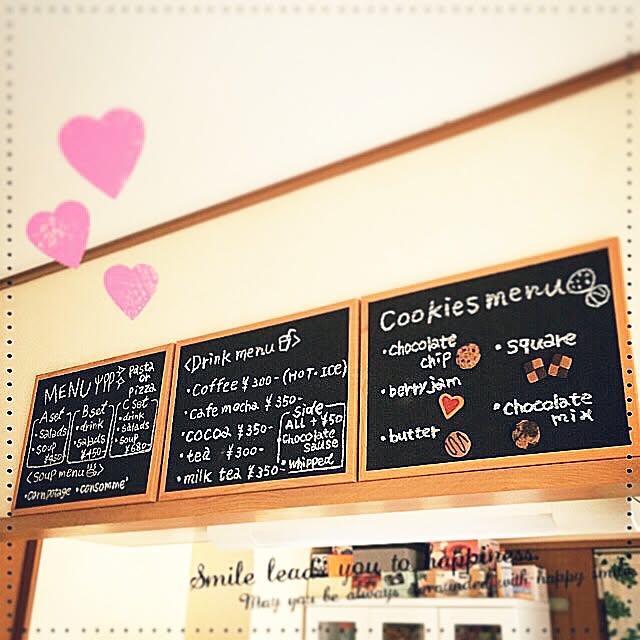 MENU
pasta
or
pizza
A set
・salads
・soup
B set
・drink
・salads
¥450
C set
・drink
・salads
・soup
¥680
<soup menu>
・cornpotage ・consomme'
<Drink menu>
・coffee ¥300-(HOT・ICE)
・cafe mocha ¥350-
・cocoa ¥350-
・tea ¥300-
・milk tea ¥350-
Side
ALL +¥50
・chocolate
sause
・whipped
Cookies menu
・chocolate
chip
・berryjam
・butter
・square
・chocolate
mix
Smile leads you to happiness.
May you be always surrounded with happy smile